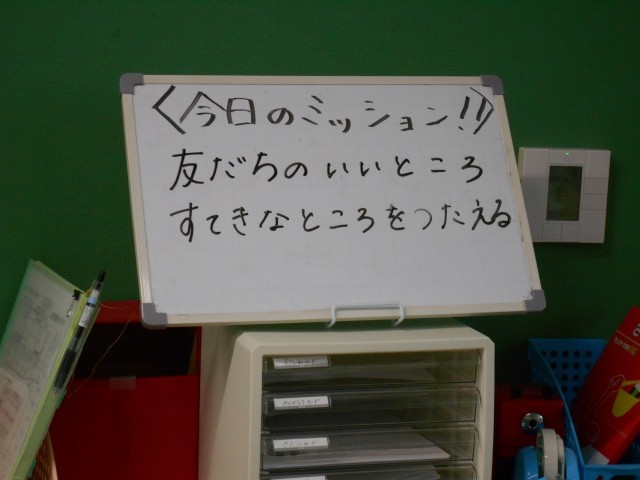 〈今日のミッション!!〉
友だちのいいところ
すてきなところをつたえる